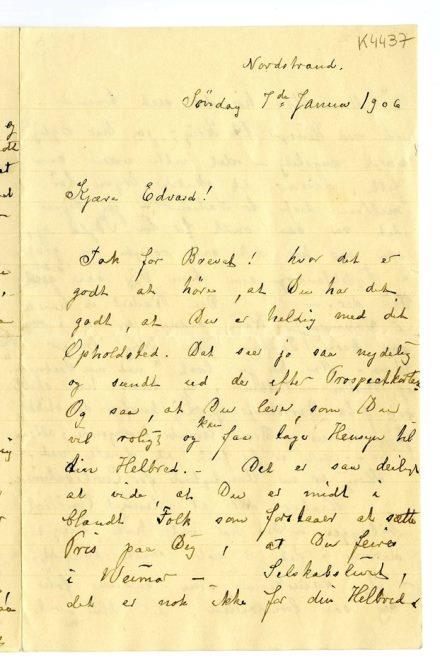 K4437
Nordstrand.
Søndag 7de Januar 1906
Kjære Edvard!
Tak for Brevet! hvor det er
godt at höre, at Du har det
godt, at Du er heldig med dit
Opholdsted. Det seer jo saa nydelig
og sundt ud der efter Prospectkortene
Og saa, at Du lever som Du
vil roligt og kan faa tage Hensyn til
din Helbred. – Det er saa deiligt
at vide, at Du er midt i
blandt Folk som forstaaer at sætte
Pris paa Dig, at Du feires
i Weimar – Selskabslivet,
det er nok ikke for din Helbred